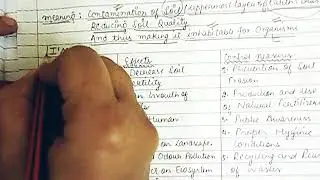 meaning: Contamination of soil/uppermost layer of earth's crust
Reducing Soil Quality
And thus making it inhabitable for Organisms
Effects
Control Measures
Decrease Soil
Fertility
on Growth of
Human
on Landscape
Odour Pollution
on Ecosystem
Prevention of Soil
Erosion
2. Production and Use
of Natural Fertilizers
3. Public Awareness
4. Proper Hygiene
Conditions
5. Recycling and Reuse
of Wastes